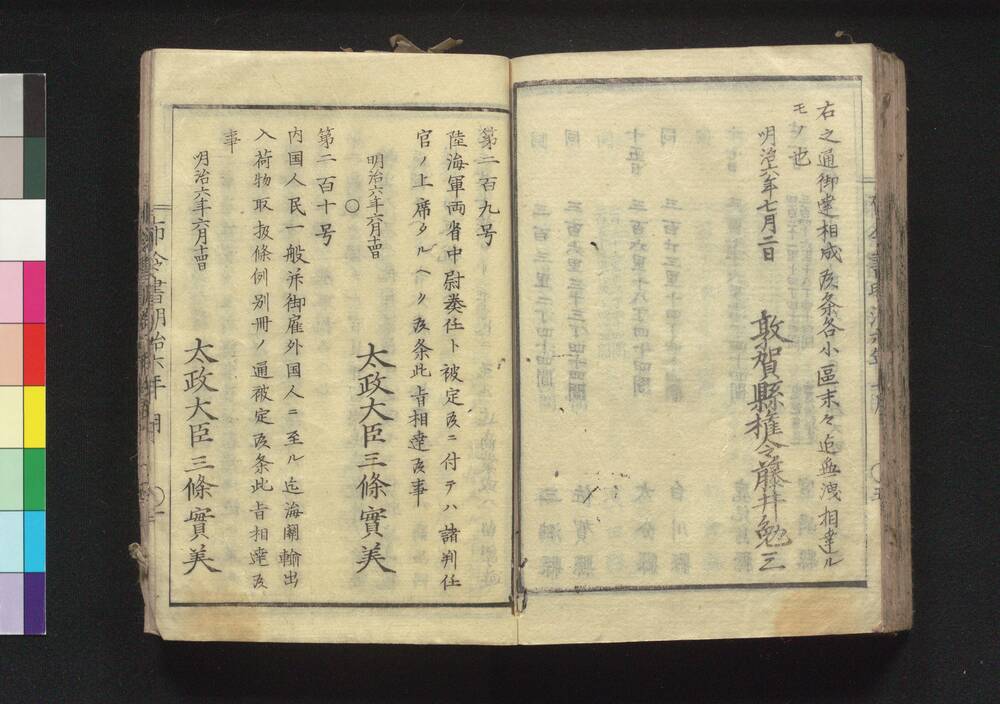 右之通御達相成候条各小區末々迄無洩相達ル
モノ也
明治六年七月二日
敦賀縣権令藤井勉三
第二百九号
陸海軍両省中尉奏任ト被定候ニ付テハ諸判任
官ノ上席タルヘク候条此旨相達候事
明治六年六月十四日
太政大臣三條實美
○
第二百十号
内国人民一般并御雇外国人ニ至ル迄海關輸出
入荷物取扱條例別冊ノ通被定候条此旨相達候
事
明治六年六月十四日
太政大臣三條實美
布令書明治六年